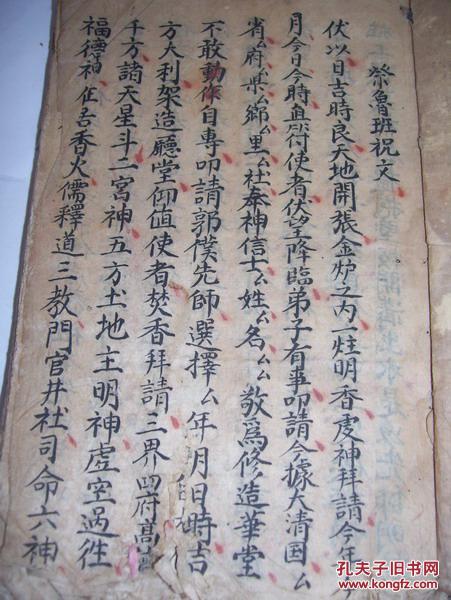 祭魯班祝文
伏以日吉時良天地開張金炉之内一炷明香虔神拜請今年
月今日今時直符使者伏望降臨弟子有事叩請今據大清国厶
省厶府厶県厶鄉厶里厶社奉神信士厶姓厶名厶厶敬爲修造華堂
不敢動作自專叩請郭僕先師選擇厶年月日時吉
方大利架造廳堂仰值使者焚香拜請三界四府高
千方諸天星斗二宮神五方土地主明神虚空過徃
福德神 香火儒釋道三教門官井灶司命六神
孔夫子旧书网